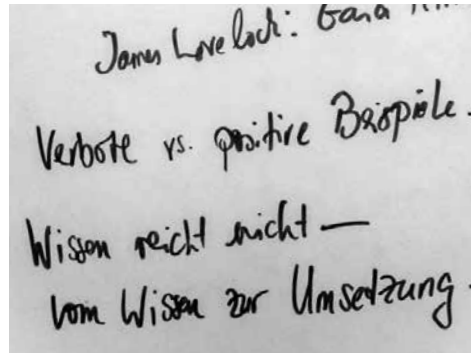 James Lovelock: Gaia
Verbote vs. positive Beispiele.
Wissen reicht nicht —
vom Wissen zur Umsetzung.